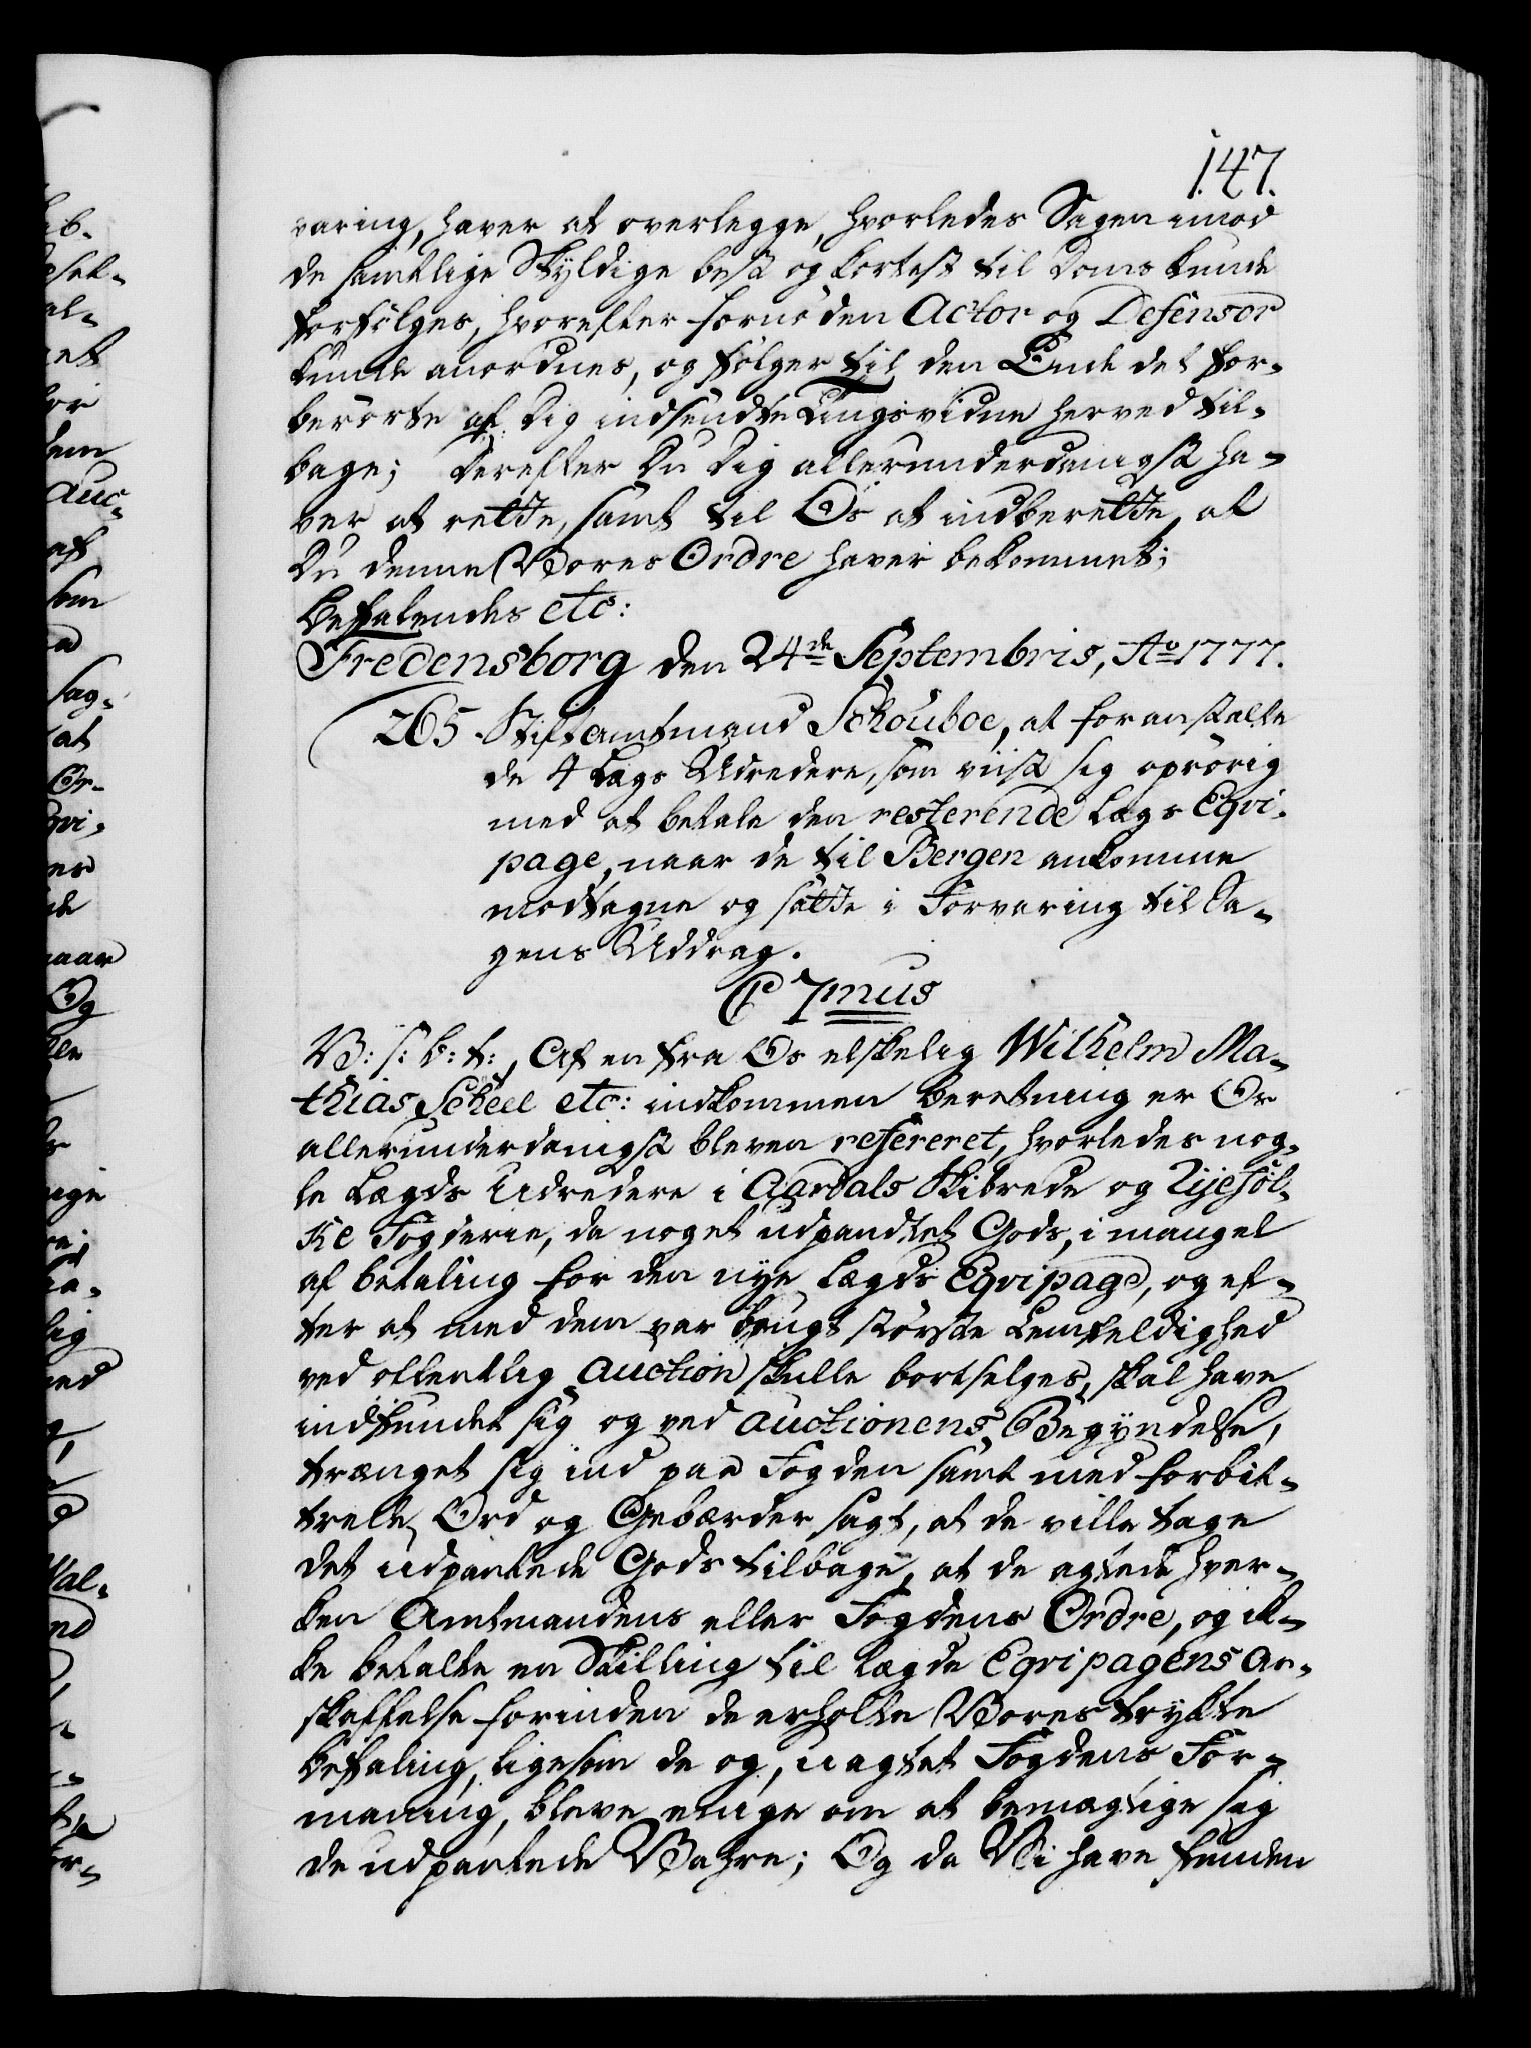 147.
varing, haver at overlegge, hvorledes Sagen imod
de samtlige Skyldige best og kortest til Doms kunde
forfølges, hvorefter fornøden Actor og Defensor
kunde anordnes, og følger til den Ende det for-
berørte af Dig indsendte Tingsvidne herved til-
bage; Derefter Du Dig allerunderdanigst ha-
ver at rette, samt til Os at indberette, at
Du denne Vores Ordre haver bekommet;
Befalendes etc:
Fredensborg den 24de Septembris, Ao 1777.
265 Stiftamtmand Schouboe, at foranstalte
de 4 Lægs Udredere, som viist sig oprørig
med at betale den resterende Lægs Eqvi-
page, naar de til Bergen ankomme
modtagne og satte i Forvaring til Sa-
gens Uddrag.
C 7mus
V: s: b: t:, Af en fra Os elskelig Wilhelm Ma-
thias Scheel etc: indkommen Beretning er Os
allerunderdanigst bleven refereret, hvorledes nog-
le Lægds Udredere i Aardals Skibrede og Ryefül-
ke Fogderie, da noget udpandtet Gods, i mangel
af betaling for den nye Lægds Eqvipage, og ef-
ter at med dem var brugt største Lemfeldighed
ved offentlig Auction skulle bortselges, skal have
indfundet sig og ved Auctionens Begyndelse,
trænget sig ind paa Fogden samt med forbit-
trede Ord og Gebærder sagt, at de ville tage
det udpantede Gods tilbage, at de agtede hver-
ken Amtmandens eller Fogdens Ordre, og ik-
ke betalte en Skilling til Lægds Eqvipagens An-
skaffelse forinden de erholte Vores trykte
Befaling, ligesom de og, uagtet Fogdens For-
maning, bleve enige om at bemægtige sig
de udpantede Vahre; Og da Vi have funden